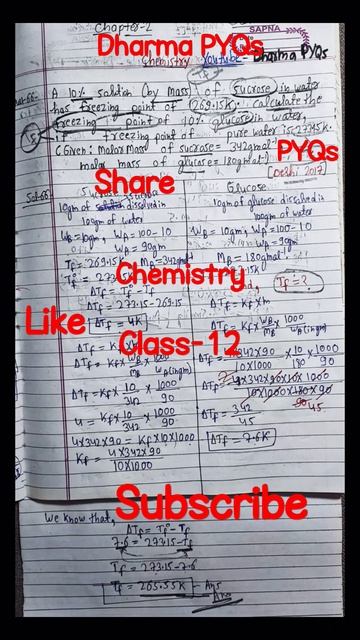 Chapter-2
SAPNA
Dharma PYQs
Chemistry YouTube- Dharma PYQs
A 10% solution (by mass) of sucrose in water
has freezing point of 269.15K. calculate the
freezing point of 10% glucose in water,
if freezing point of pure water is 273.15K
(Given: Molar Mass of sucrose = 342gmol⁻¹
molar mass of glucose = 180gmol⁻¹)
PYQs
[Delhi 2017]
Share
Glucose
10gm of dissolved in
100gm of water
WB = 10gm, WA = 100-10
WA = 90gm
Tf = 269.15K, MB = 342
ΔTf = Tf° - Tf
ΔTf = 273.15 - 269.15
ΔTf = 4K
ΔTf = Kf × 10/342 × 1000/90
4 = Kf × 10/342 × 1000/90
4×342×90 = Kf × 10×1000
Kf = 4×342×90/10×1000
10gm of glucose dissolved in
100gm of water
WB = 10gm, WA = 100-10
WA = 90gm
MB = 180gmol⁻¹
Tf = ?
ΔTf = Kf × m
ΔTf = Kf × WB/MB × 1000/WA(in gm)
ΔTf = 4×342×90/10×1000 × 10/180 × 1000/90
ΔTf = 342/45
ΔTf = 7.6K
Chemistry
Like
Class-12
Subscribe
We know that,
ΔTf = Tf° - Tf
7.6 = 273.15 - Tf
Tf = 273.15 - 7.6
Tf = 265.55K Ans